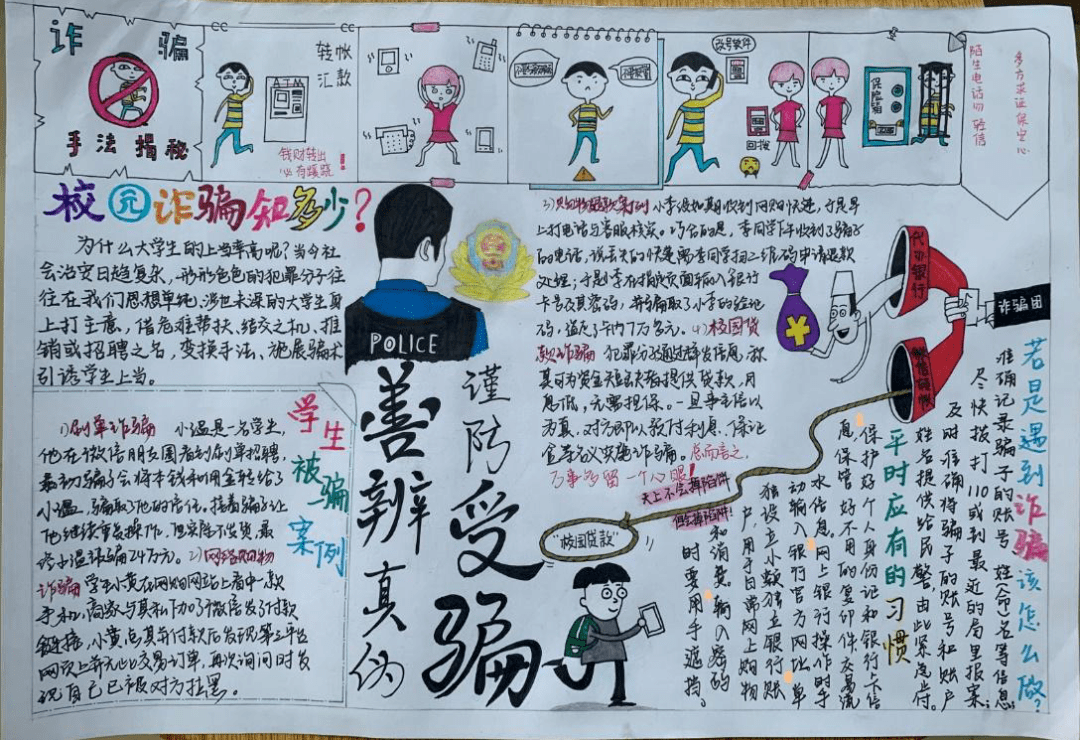 诈骗
手法揭秘
ATM
转帐
汇款
钱财转出
必有蹊跷!
改号软件
回拨
保险箱
陌生电话勿轻信
多方求证保安心
校园诈骗知多少?
为什么大学生的上当率高呢?当今社
会治安日趋复杂,形形色色的犯罪分子往
往在我们思想单纯、涉世未深的大学生身
上打主意,借危难帮扶、结交之机、推
销或招聘之名,变换手法、施展骗术
引诱学生上当。
POLICE
学生
被骗
案例
1)刷单诈骗 小温是一名学生,
他在微信朋友圈看到刷单招聘,
最初骗子会将本钱和佣金转给了
小温,骗取了他的信任。接着骗子让
他继续重复操作,但实际不发货,最
终小温被骗24万元。2)网络购物
诈骗 学生小黄在网购网站上看中一款
手机,商家与其私下加了微信发了付款
链接,小黄点其并付款后发现第三平台
网页上并无此交易订单,再次询问时发
现自己已被对方拉黑。
谨防受骗
善辨真伪
3)购物退款案例 小李没如期收到网购快递,于是早
上打电话与客服核实。巧合的是,李同学下午收到了骗子
的电话,说丢失的快递需李同学扫二维码申请退款
处理;于是小李在指定页面输入银行
卡号及其密码,并骗取了小李的验证
码,
4)校园贷
款诈骗 犯罪分子通过群发信息,称
其可为资金短缺者提供贷款,月
息低,无需担保。一旦事主信以
为真,对方即以预付利息、保证
金等名义实施诈骗。总而言之,
万事多留一个心眼!
天上不会掉馅饼
但会掉陷阱!
“校园贷款”
代办银行
诈骗团
若是遇到诈骗该怎么做?
准确记录骗子的账号、姓(命)名等信息;
尽快拨打110或到最近的局里报案;
及时准确将骗子的账号和账户
姓名提供给民警,由此紧急止付。
平时应有的习惯
保护好个人身份证和银行卡信
息,保管好不用的复印件、交易流
水信息。网上银行操作时手
动输入银行官方网址。单
独设立小额独立银行账
户,用于日常网上购物
和消费。输入密码
时要用手遮挡。